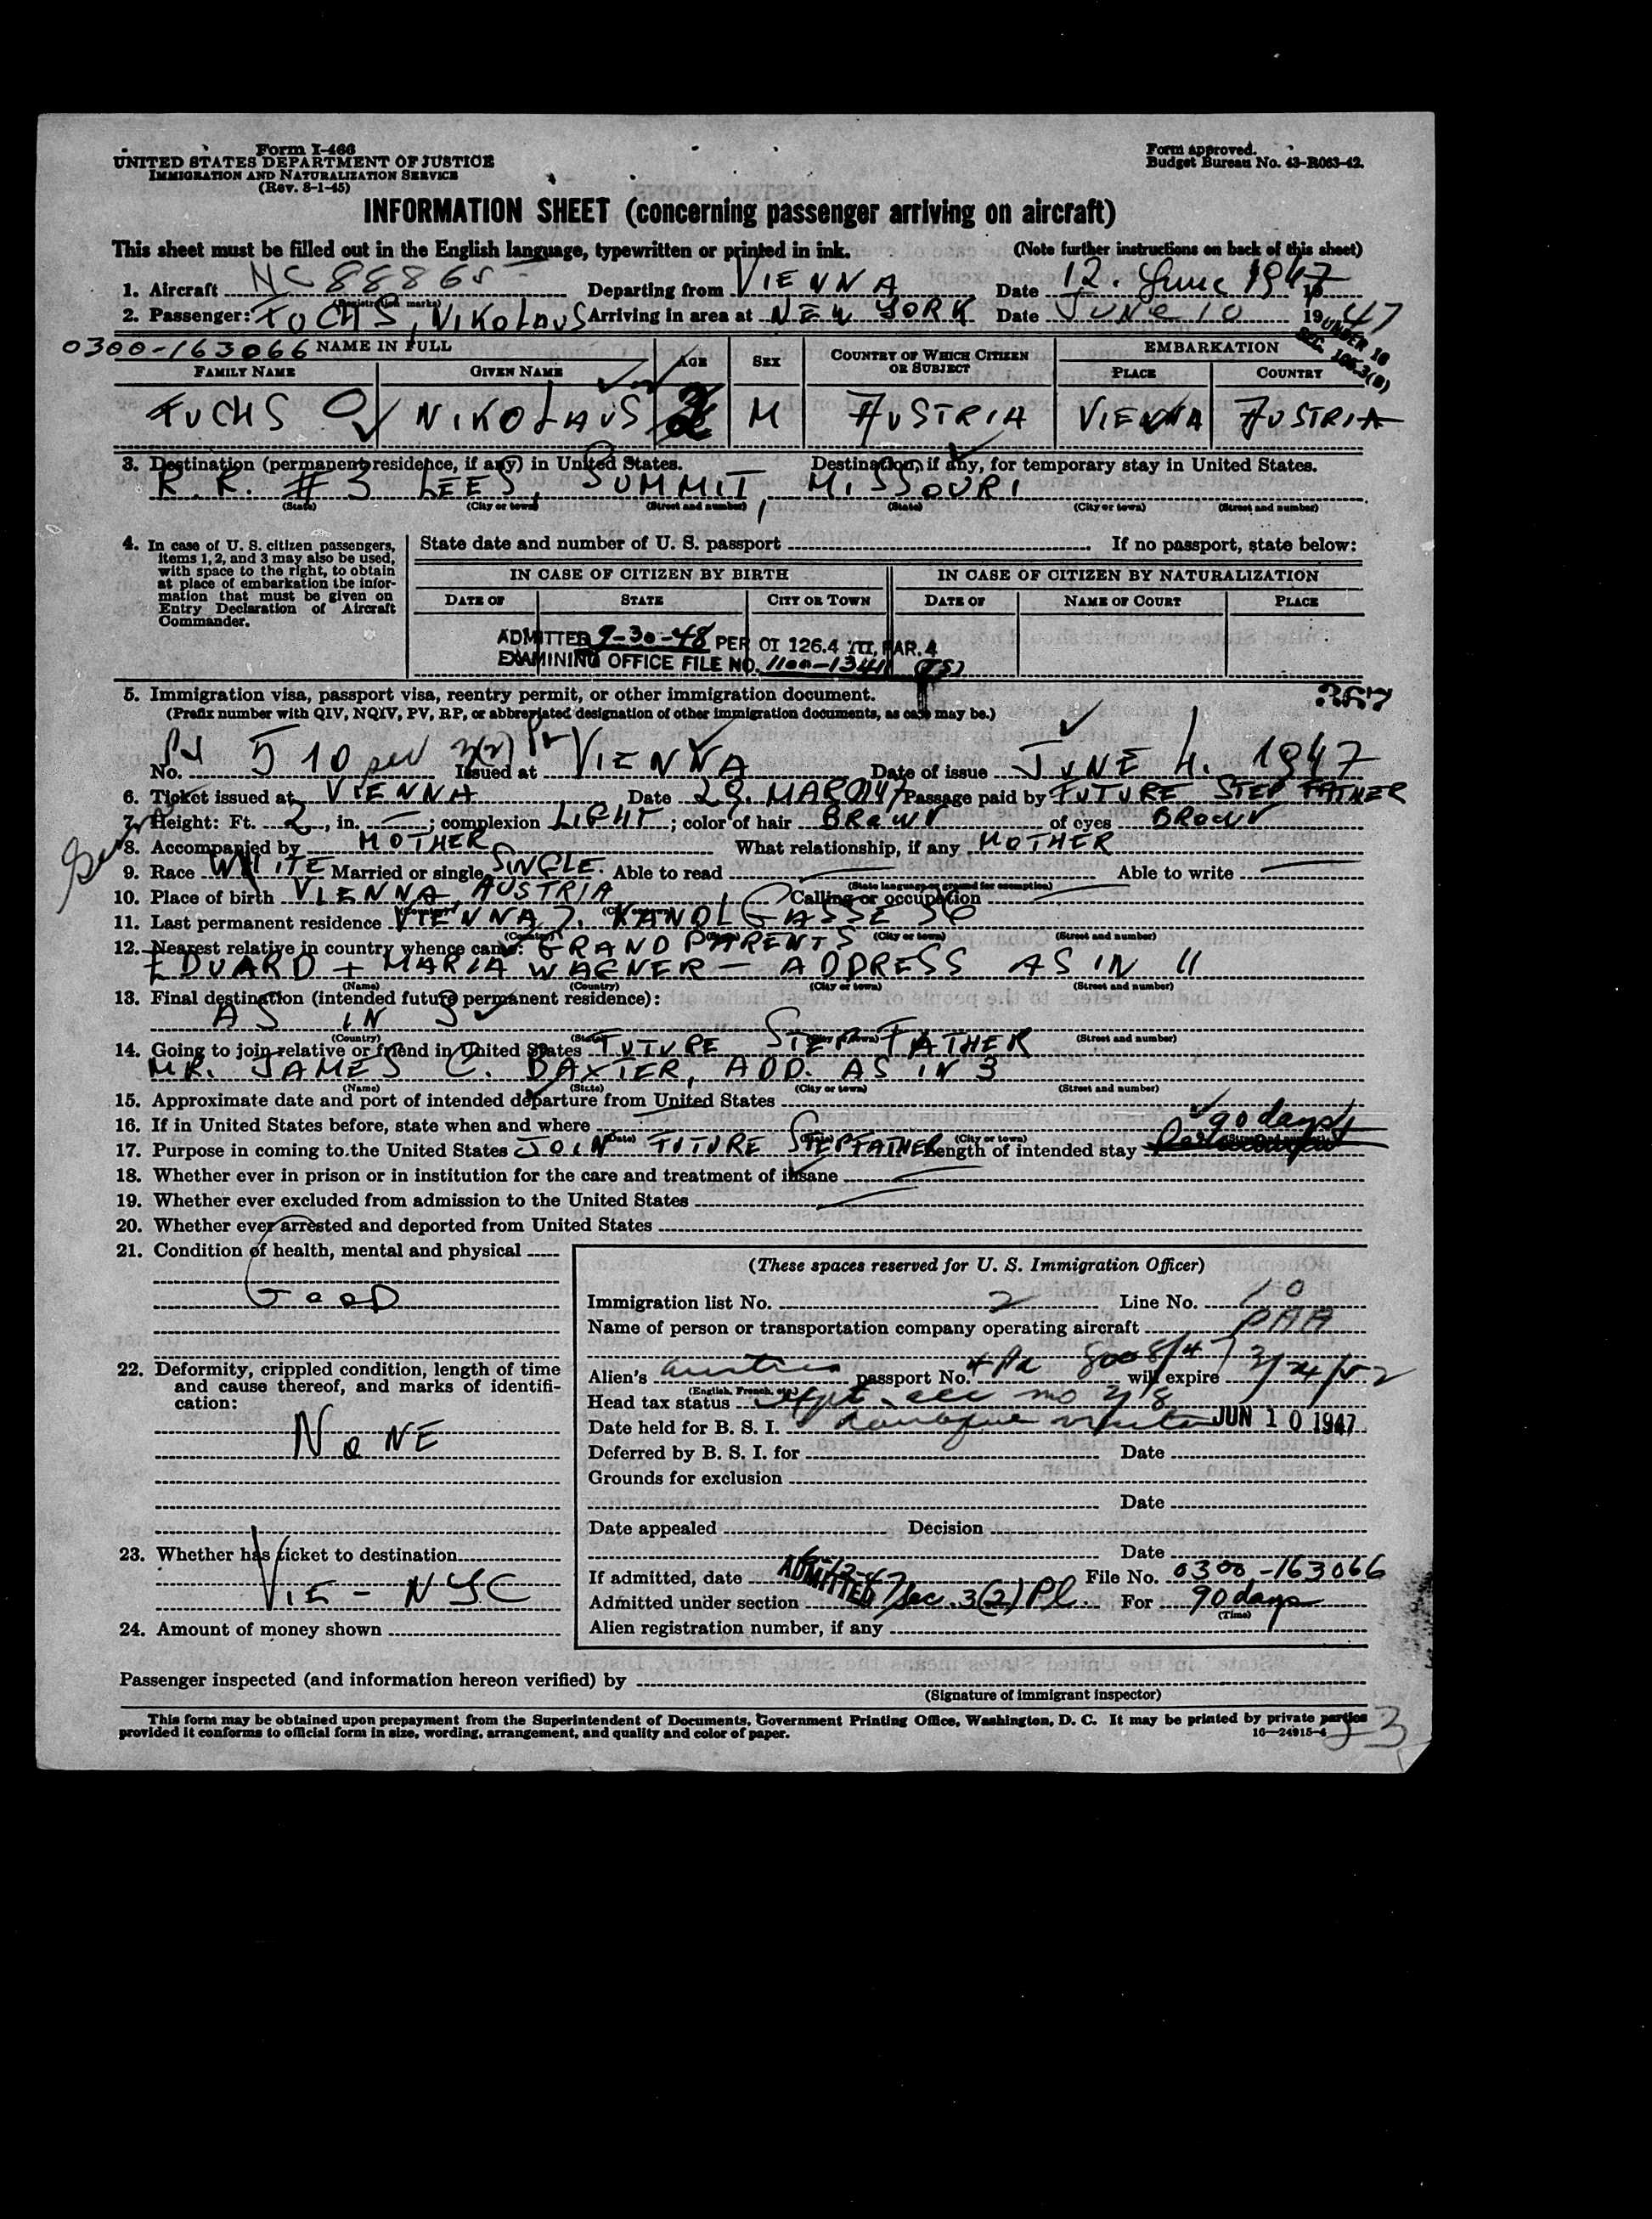 Form I-466
UNITED STATES DEPARTMENT OF JUSTICE
IMMIGRATION AND NATURALIZATION SERVICE
(Rev. 8-1-45)
Form approved.
Budget Bureau No. 43-R063-42.
INFORMATION SHEET (concerning passenger arriving on aircraft)
This sheet must be filled out in the English language, typewritten or printed in ink. (Note further instructions on back of this sheet)
1. Aircraft NC 88865 Departing from VIENNA Date 12. June 1947
(Registration marks)
2. Passenger: FUCHS, NIKOLAUS Arriving in area at NEW YORK Date JUNE 10 1947
UNDER 10
SEC. 105.3(B)
0300-163066 NAME IN FULL AGE SEX COUNTRY OF WHICH CITIZEN OR SUBJECT EMBARKATION
FAMILY NAME GIVEN NAME PLACE COUNTRY
FUCHS NIKOLAUS 2 M AUSTRIA VIENNA AUSTRIA
3. Destination (permanent residence, if any) in United States. Destination, if any, for temporary stay in United States.
R.R. #3 LEES, SUMMIT, MISSOURI
(State) (City or town) (Street and number) (State) (City or town) (Street and number)
4. In case of U. S. citizen passengers, items 1, 2, and 3 may also be used, with space to the right, to obtain at place of embarkation the information that must be given on Entry Declaration of Aircraft Commander.
State date and number of U. S. passport If no passport, state below:
IN CASE OF CITIZEN BY BIRTH IN CASE OF CITIZEN BY NATURALIZATION
DATE OF STATE CITY OR TOWN DATE OF NAME OF COURT PLACE
ADMITTED 9-30-48 PER OI 126.4 III, PAR. 4
EXAMINING OFFICE FILE NO. 1100-1341
5. Immigration visa, passport visa, reentry permit, or other immigration document.
(Prefix number with QIV, NQIV, PV, RP, or abbreviated designation of other immigration documents, as case may be.)
No. 510 3(2) Issued at VIENNA Date of issue JUNE 4. 1947
6. Ticket issued at VIENNA Date 28. MAR 1947 Passage paid by FUTURE STEP FATHER
7. Height: Ft. 2, in. —; complexion LIGHT; color of hair BROWN of eyes BROWN
8. Accompanied by MOTHER What relationship, if any MOTHER
9. Race WHITE Married or single SINGLE. Able to read — Able to write —
(State language or ground for exemption)
10. Place of birth VIENNA, AUSTRIA Calling or occupation —
11. Last permanent residence VIENNA 7. KANDLGASSE 36
(Country) (City or town) (Street and number)
12. Nearest relative in country whence came: GRAND PARENTS
EDUARD + MARIA WAGNER — ADDRESS AS IN 11
(Name) (Country) (City or town) (Street and number)
13. Final destination (intended future permanent residence):
AS IN 3
(Country) (State) (City or town) (Street and number)
14. Going to join relative or friend in United States FUTURE STEP FATHER
MR. JAMES C. BAXTER, ADD. AS IN 3
(Name) (State) (City or town) (Street and number)
15. Approximate date and port of intended departure from United States
16. If in United States before, state when and where
(Date) (State) (City or town) (Street and number)
17. Purpose in coming to the United States JOIN FUTURE STEPFATHER Length of intended stay 90 days
18. Whether ever in prison or in institution for the care and treatment of insane —
19. Whether ever excluded from admission to the United States —
20. Whether ever arrested and deported from United States
21. Condition of health, mental and physical
GOOD
22. Deformity, crippled condition, length of time and cause thereof, and marks of identification:
NONE
23. Whether has ticket to destination
VIE - NYC
24. Amount of money shown
(These spaces reserved for U. S. Immigration Officer)
Immigration list No. 2 Line No. 10
Name of person or transportation company operating aircraft PAA
Alien's Austrian passport No. 8008/47 will expire 3/24/52
(English, French, etc.)
Head tax status
Date held for B. S. I. JUN 10 1947
Deferred by B. S. I. for Date
Grounds for exclusion
Date
Date appealed Decision
Date
If admitted, date 6-12-47 File No. 0300-163066
ADMITTED
Admitted under section Sec. 3(2) Pl. For 90 days
(Time)
Alien registration number, if any
Passenger inspected (and information hereon verified) by
(Signature of immigrant inspector)
This form may be obtained upon prepayment from the Superintendent of Documents, Government Printing Office, Washington, D. C. It may be printed by private parties
provided it conforms to official form in size, wording, arrangement, and quality and color of paper. 16—24915-4